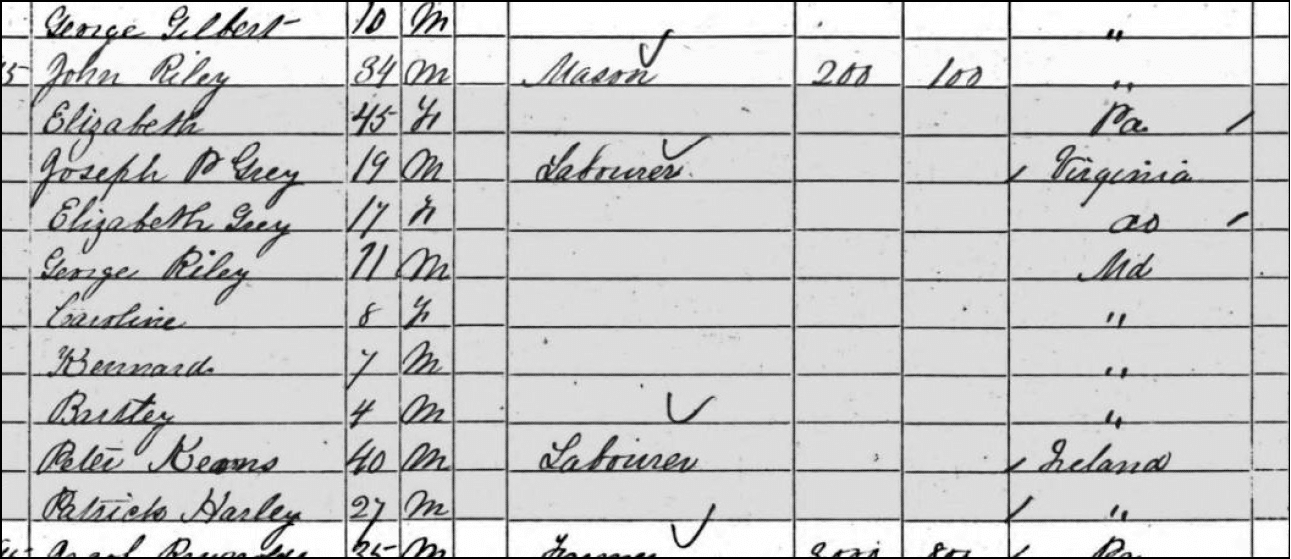 George Gilbert 10 M "
5 John Riley 34 M Mason 200 100 "
Elizabeth 45 F Pa
Joseph P Grey 19 M Labourer Virginia
Elizabeth Grey 17 F do
George Riley 11 M Md
Caroline 8 F "
Kennard 7 M "
4 M "
Peter Kearns 40 M Labourer Ireland
Patrick Harley 27 M "
25 M Farmer Pa